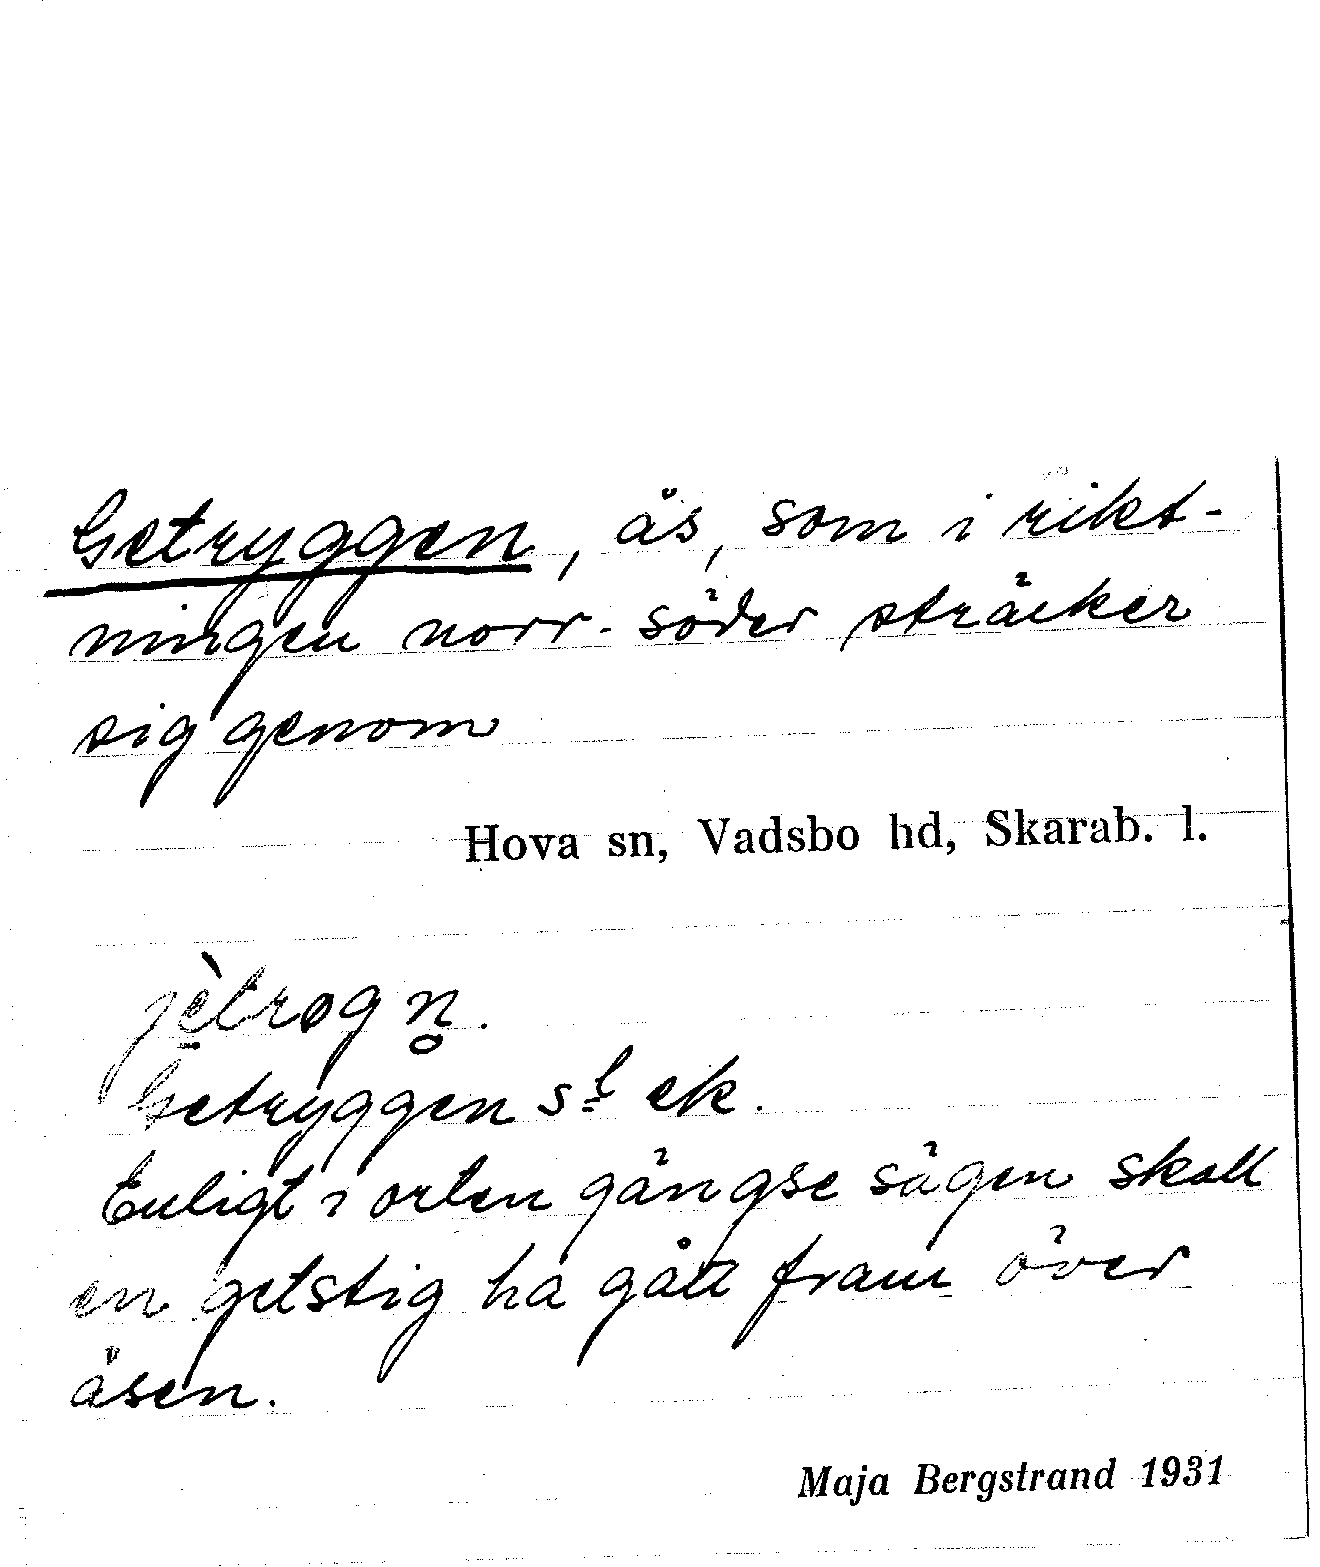 Getryggen, ås, som i rikt-
ningen norr-söder sträcker
sig genom
Hova sn, Vadsbo hd, Skarab. l.
jètrøg n̥.
Getryggen sᵗ ek.
Enligt i orten gängse sägen skall
en getstig ha gått fram över
åsen.
Maja Bergstrand 1931